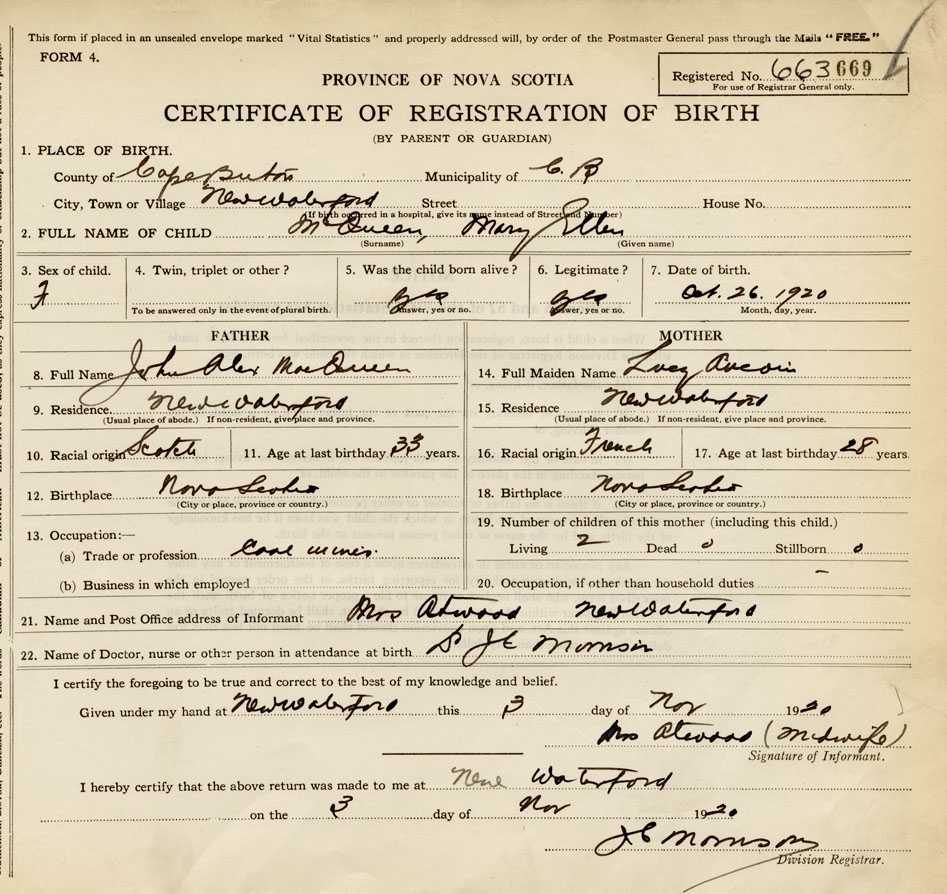 This form if placed in an unsealed envelope marked "Vital Statistics" and properly addressed will, by order of the Postmaster General pass through the Mails "FREE."
FORM 4.
Registered No. 663 669
For use of Registrar General only.
PROVINCE OF NOVA SCOTIA
CERTIFICATE OF REGISTRATION OF BIRTH
(BY PARENT OR GUARDIAN)
1. PLACE OF BIRTH.
County of Cape Breton Municipality of C. B
City, Town or Village New Waterford Street House No.
(If birth occurred in a hospital, give its name instead of Street and Number)
2. FULL NAME OF CHILD McQueen, Mary Ellen
(Surname) (Given name)
3. Sex of child. 4. Twin, triplet or other? 5. Was the child born alive? 6. Legitimate? 7. Date of birth.
F yes yes Oct. 26. 1920
To be answered only in the event of plural birth. Answer, yes or no. Answer, yes or no. Month, day, year.
FATHER
8. Full Name John Alex MacQueen
9. Residence. New Waterford
(Usual place of abode.) If non-resident, give place and province.
10. Racial origin Scotch 11. Age at last birthday 33 years.
12. Birthplace Nova Scotia
(City or place, province or country.)
13. Occupation:—
(a) Trade or profession Coal miner
(b) Business in which employed
MOTHER
14. Full Maiden Name Lucy Aucoin
15. Residence New Waterford
(Usual place of abode.) If non-resident, give place and province.
16. Racial origin French 17. Age at last birthday 28 years
18. Birthplace Nova Scotia
(City or place, province or country.)
19. Number of children of this mother (including this child.)
Living 2 Dead 0 Stillborn 0
20. Occupation, if other than household duties -
21. Name and Post Office address of Informant Mrs Atwood New Waterford
22. Name of Doctor, nurse or other person in attendance at birth J E Morrison
I certify the foregoing to be true and correct to the best of my knowledge and belief.
Given under my hand at New Waterford this 3 day of Nov 1920
Mrs Atwood (Midwife)
Signature of Informant.
I hereby certify that the above return was made to me at New Waterford
on the 3 day of Nov 1920
J E Morrison
Division Registrar.